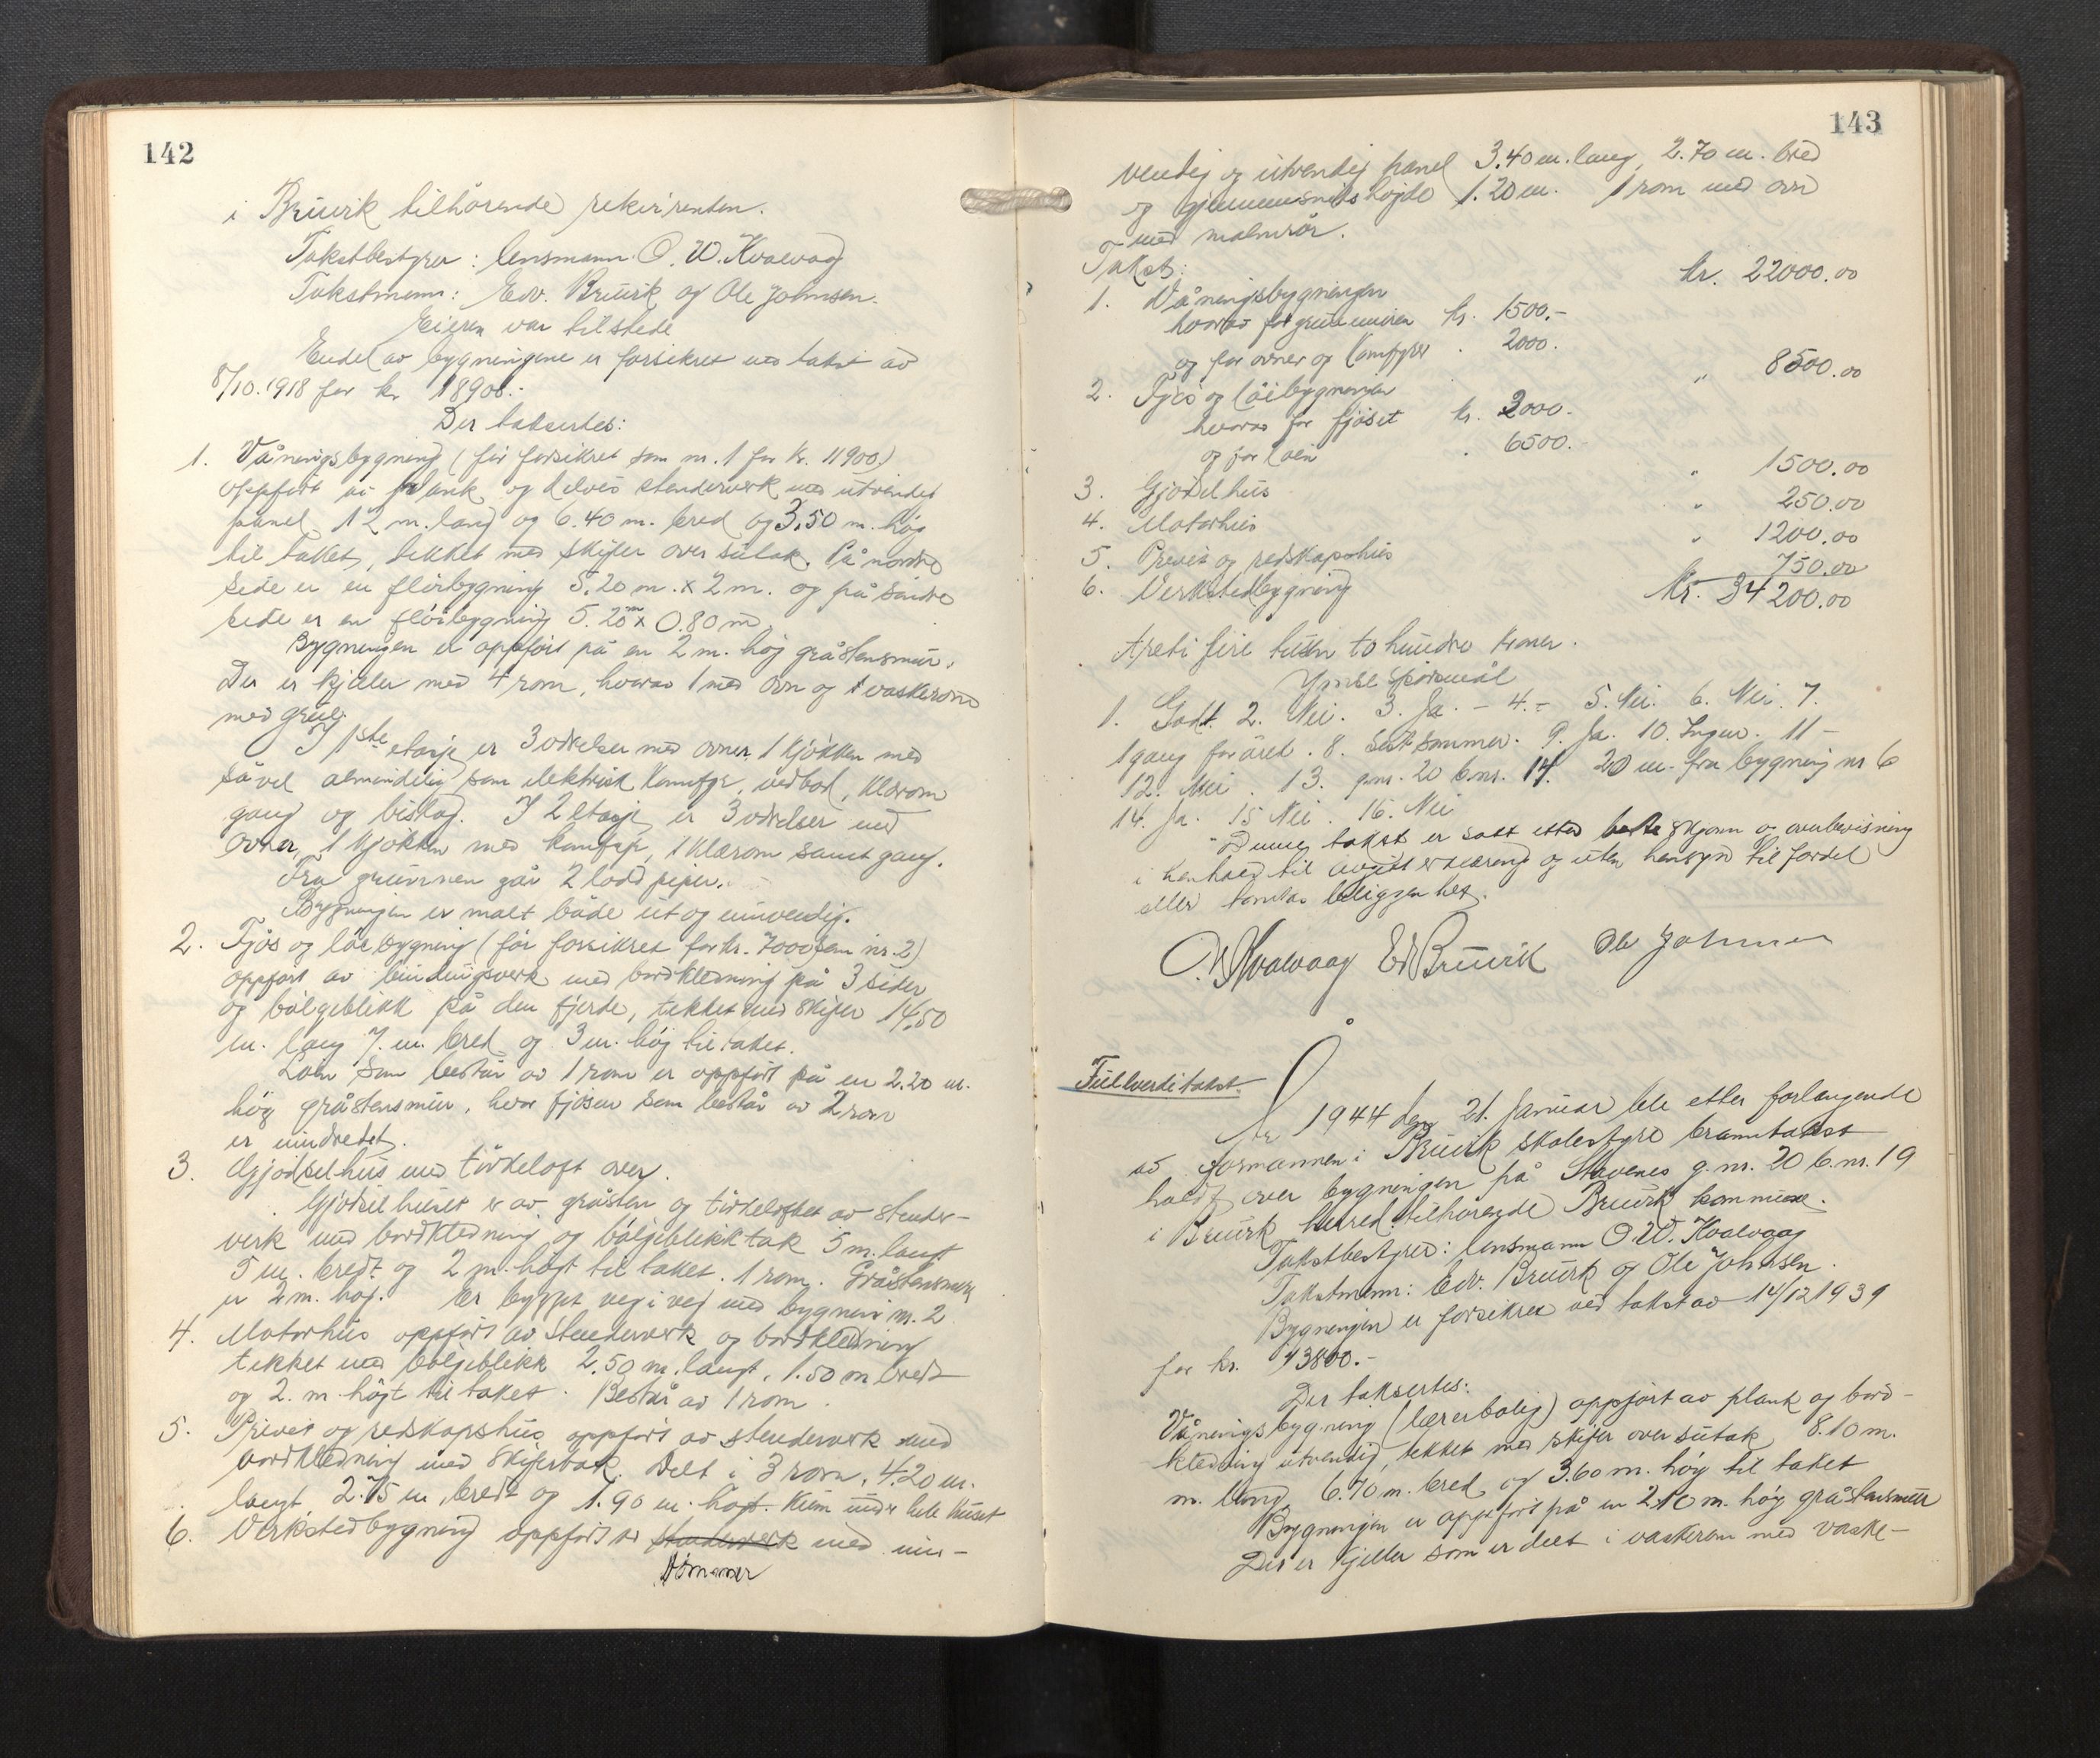 142
i Bruvik tilhørende rekvirenten.
Takstbestyrer: lensmann O. W. Kvalvaag
Takstmenn: Edv. Bruvik og Ole Johnsen.
Eieren var tilstede
Endel av bygningene er forsikret ved takst av
8/10.1918 for kr 18900.-
Der taksertes:
1. Våningsbygning (før forsikret som nr. 1 for kr. 11900.)
oppført av plank og delvis stenderverk med utvendet
panel 12 m. lang og 6.40 m. bred og 3.50 m. høg
til taket, tekket med skifer over sutak. På nordre
side er en flöibygning 5.20 m. x 2 m. og på söndre
side er en flöibygning 5.20 m x 0.80 m.
Bygningen er oppført på en 2 m. høg gråstensmur.
Der er kjeller med 4 rom, hvorav 1 med ovn og 1 vaskerom
med grue.
I 1ste etasje er 3 værelser med ovner, 1 kjökken med
såvel almindelig som elektrisk komfyr, vedbod, klærom
gang og bislag. I 2 etasje er 3 værelser med
ovner, 1 kjökken med komfyr, 1 klærom samt gang.
Fra grunnen går 2 lodd piper.
Bygningen er malt både ut og innvendig.
2. Fjös og löebygning (før forsikret for kr. 7000 som nr. 2)
oppført av bindingsverk med bordkledning på 3 sider
og bölgeblikk på den fjerde, tekket med skifer 14.50
m. lang 7. m. bred og 3 m. høj til taket.
Löen som består av 1 rom er oppført på en 2.20 m.
høg gråstensmur, hvor fjösen som består av 2 rom
er innredet.
3. Gjødselhus med törkeloft over.
Gjødselhuset er av gråsten og törkeloftet av stender-
verk med bordkledning og bölgeblikktak 5 m. langt
5 m. bredt og 2 m. högt til taket. 1 rom. Gråstensmur
er 2 m. høg. Er bygget veg i veg med bygning nr. 2
4. Motorhus oppført av stenderverk og bordkledning
tekket med bölgeblikk 2.50 m. langt, 1.50 m bredt
og 2. m. högt til taket. Består av 1 rom.
5. Privet og redskapshus oppført av stenderverk med
bordkledning med skifertak. Delt i 3 rom, 4.20 m.
langt 2.75 m. bredt og 1.90 m. högt. Kum under hele huset
6. Verkstedbygning oppført av stenderverk med inn-
tömmer
143
vendig og utvendig panel 3.40 m. lang, 2.70 m. bred
og gjennemsnitshøjde 1.20 m. 1 rom med ovn
med malmrör.
Takst:
1. Våningsbygningen kr. 22000.00
hvorav for grunnmuren kr. 1500.-
og for ovner og komfyrer " 2000.
2. Fjös og löebygningen " 8500.00
hvorav for fjöset kr. 2000.-
og for löen " 6500.-
3. Gjødselhus " 1500.00
4. Motorhus " 250.00
5. Privet og redskapshus " 1200.00
6. Verkstedbygning " 750.00
Kr. 34200.00
Treti fire tusen to hundre kroner.
Ymse spörsmål
1. Godt. 2. Nei. 3. Ja. - 4. - 5. Nei. 6. Nei. 7.
1 gang for året. 8. Sist sommer. 9. Ja. 10. Ingen. 11 -
12. Nei. 13. g.nr. 20 b.nr. 14. 20 m. fra bygning nr 6
14. Ja. 15 Nei. 16. Nei
Denne takst er satt etter beste skjønn og overbevisning
i henhold til avgitt erklæring og uten hensyn til fordel
eller tomtens beliggenhet.
O. W. Kvalvaag Ed Bruvik Ole Johnsen
Fullverditakst.
År 1944 den 21. Januar ble etter forlangende
av formannen i Bruvik skolestyre branntakst
holdt over bygningen på Stavenes g. nr. 20 b. nr. 19
i Bruvik herred tilhørende Bruvik kommune.
Takstbestyrer: lensmann O. W. Kvalvaag
Takstmenn: Edv. Bruvik og Ole Johnsen.
Bygningen er forsikret ved takst av 14/12 1939
for kr. 13800.-
Der taksertes:
Våningsbygning (lærerbolig) oppført av plank og bord-
kledning utvendig, tekket med skifer over sutak 8.10 m.
m. lang, 6.70 m. bred og 3.60 m. høg til taket
Bygningen er oppført på en 2.10 m. høg gråstensmur
Der er kjeller som er delt i vaskerom med vaske-